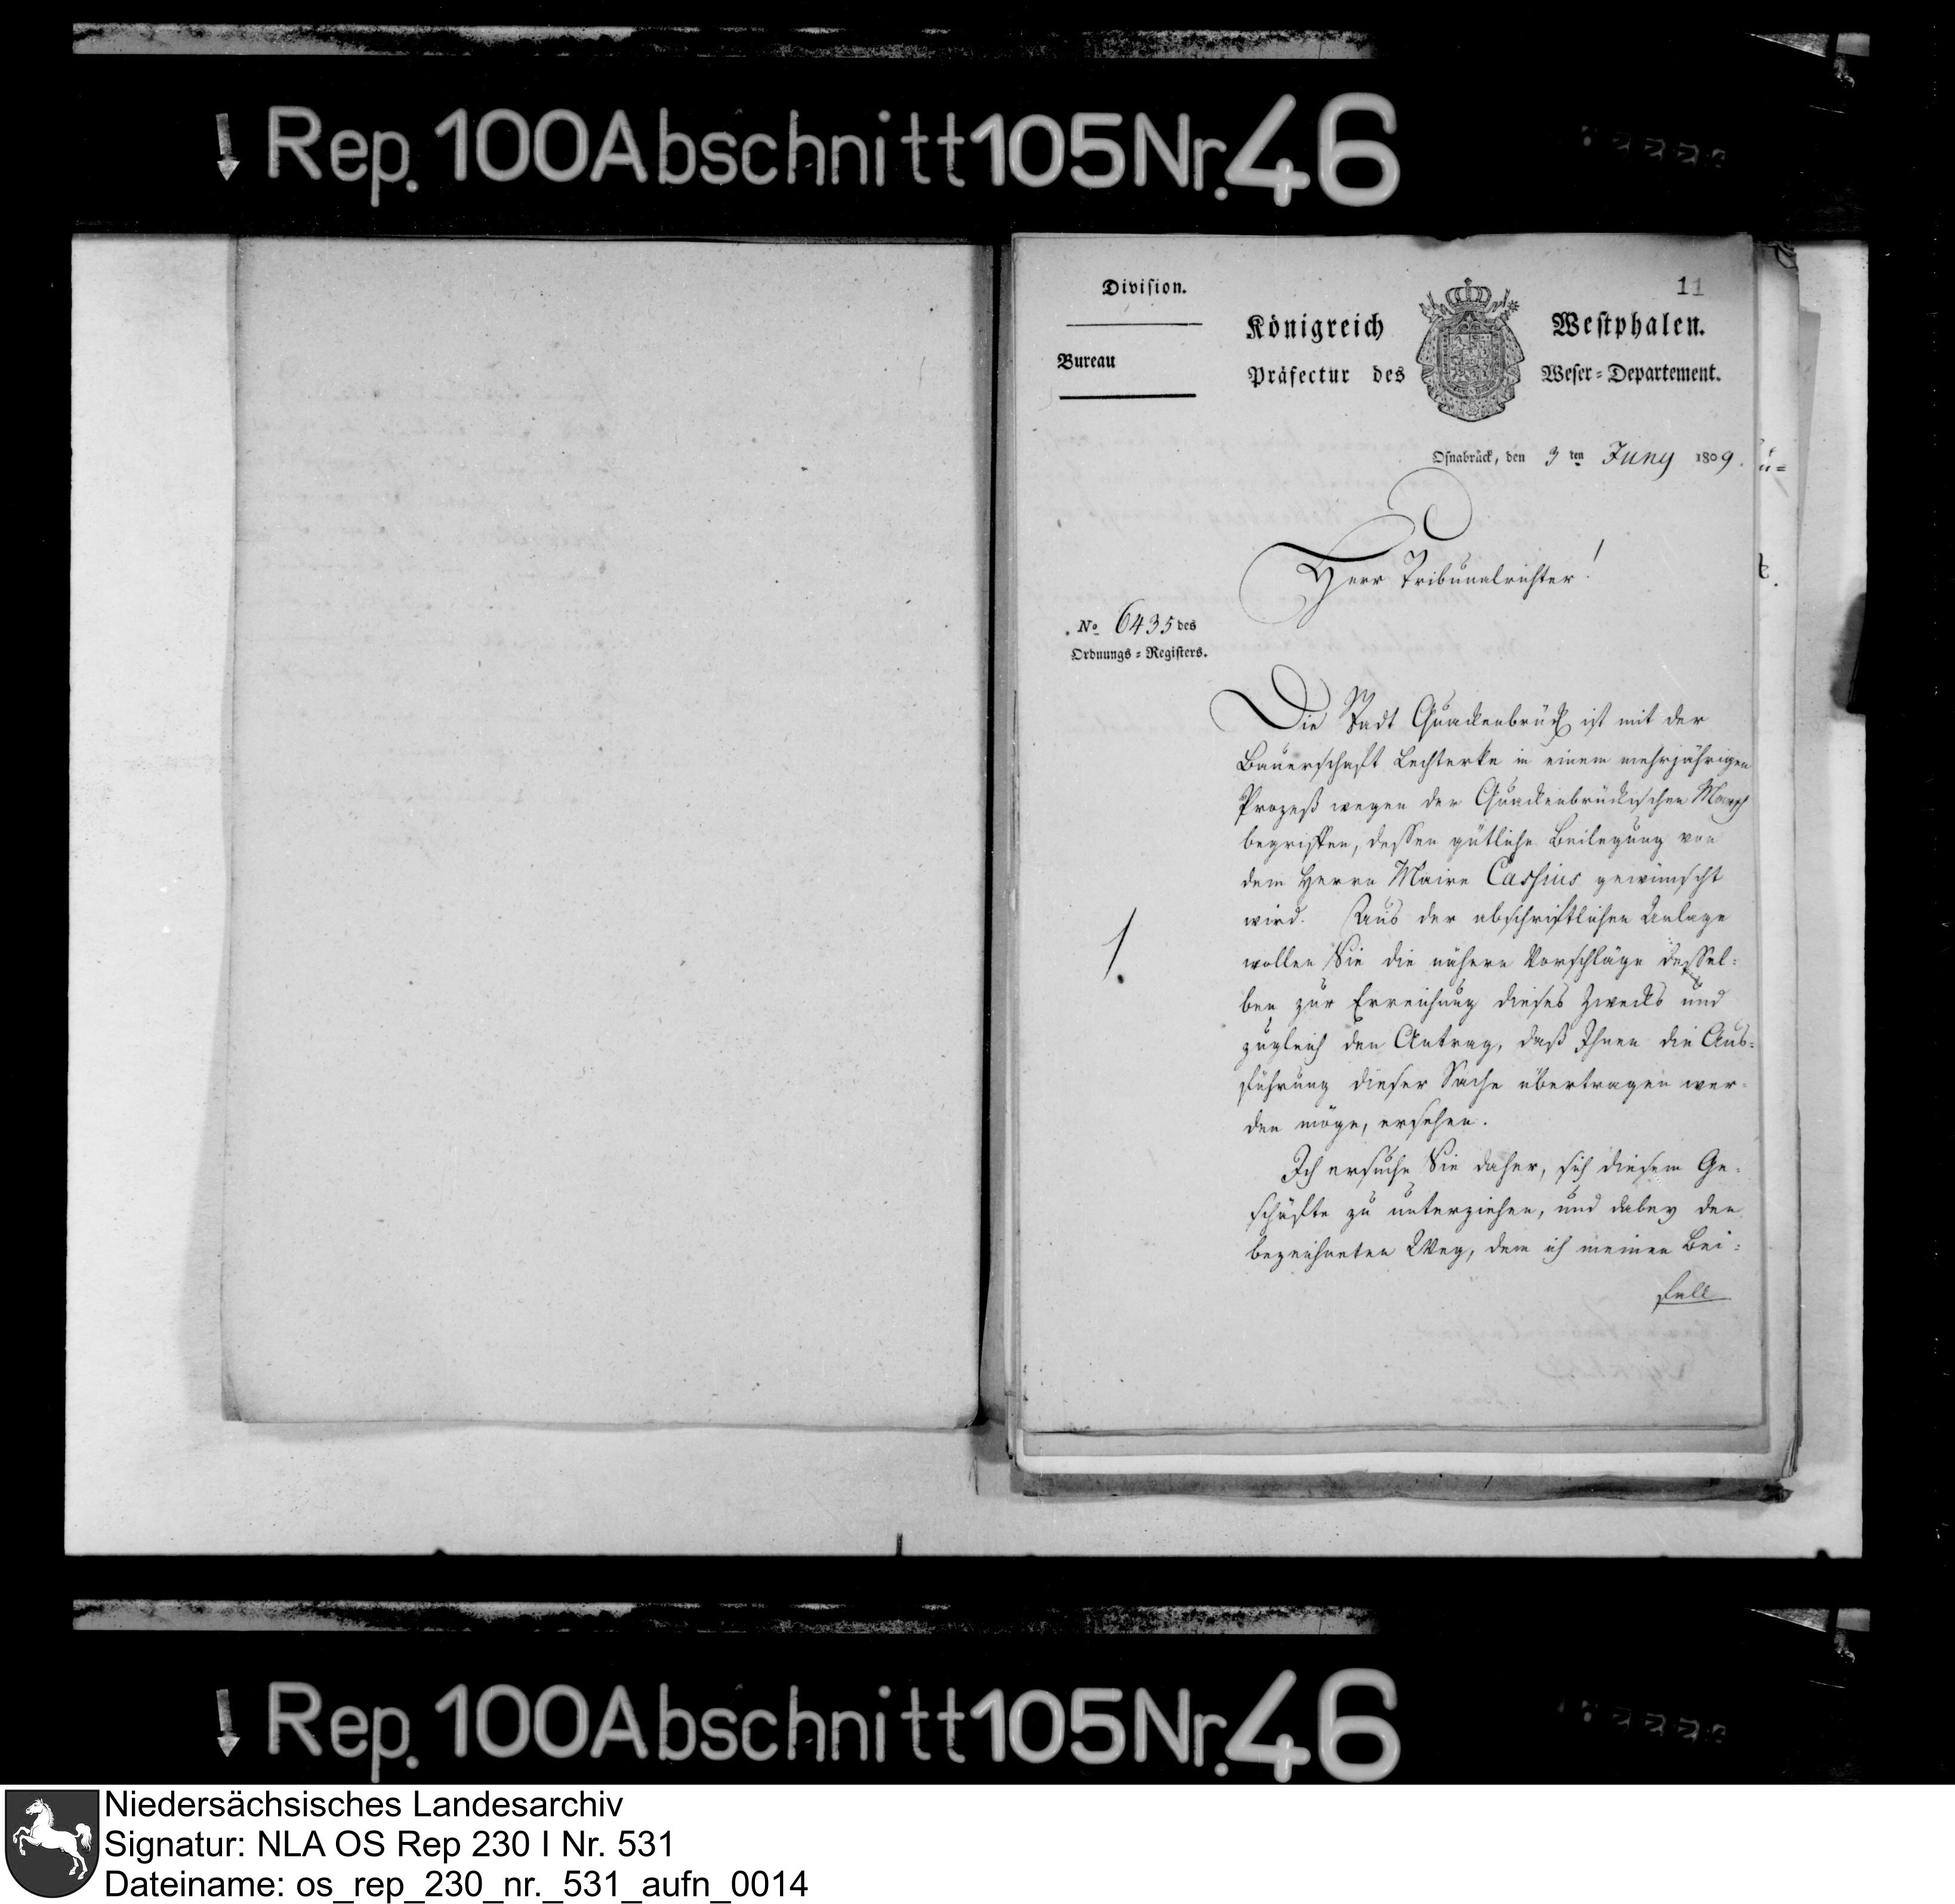 Rep. 100 Abschnitt 105 Nr. 46
Division.
11
Königreich Westphalen.
Bureau
Präfectur des Weser=Departement.
Osnabrück, den 3 ten Juny 1809.
Herr Tribunalrichter!
No 6435 des
Ordnungs=Registers.
Die Stadt Quackenbrück ist mit der
Bauerschaft Lechterke in einem mehrjährigen
Prozeß wegen der Quackenbrückischen
begriffen, dessen gütliche Beilegung von
dem Herrn Maire Cassius gewünscht
wird. Aus der abschriftlichen Anlage
wollen Sie die nähern Vorschläge dessel=
ben zur Erreichung dieses Zwecks und
zugleich den Antrag, daß Ihnen die Aus=
führung dieser Sache übertragen wer=
den möge, ersehen.
Ich ersuche Sie daher, sich diesem Ge=
schäfte zu unterziehen, und dabey den
bezeichneten Weg, dem ich meinen Bei=
fall
Rep. 100 Abschnitt 105 Nr. 46
Niedersächsisches Landesarchiv
Signatur: NLA OS Rep 230 I Nr. 531
Dateiname: os_rep_230_nr._531_aufn_0014